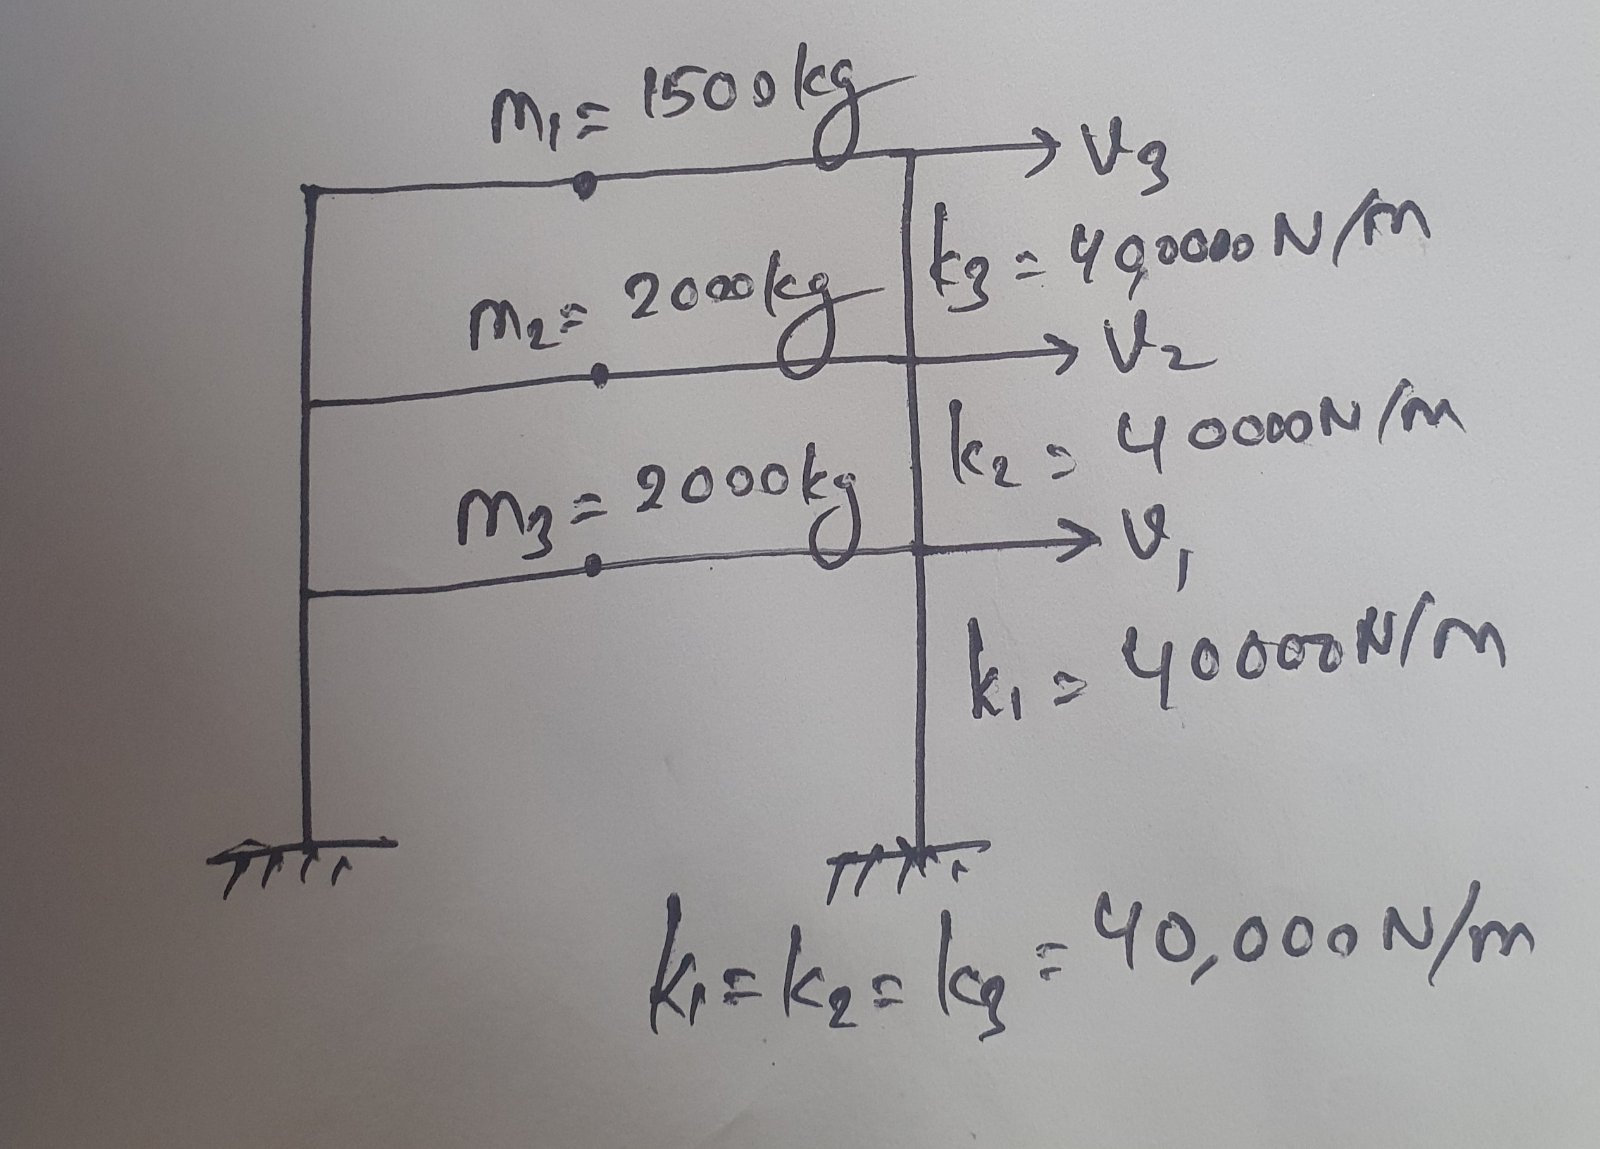 m₁ = 1500kg
v₃
k₃ = 40,0000 N/m
m₂ = 2000kg
v₂
k₂ = 40000N/m
m₃ = 2000kg
v₁
k₁ = 40000N/m
k₁ = k₂ = k₃ = 40,000 N/m